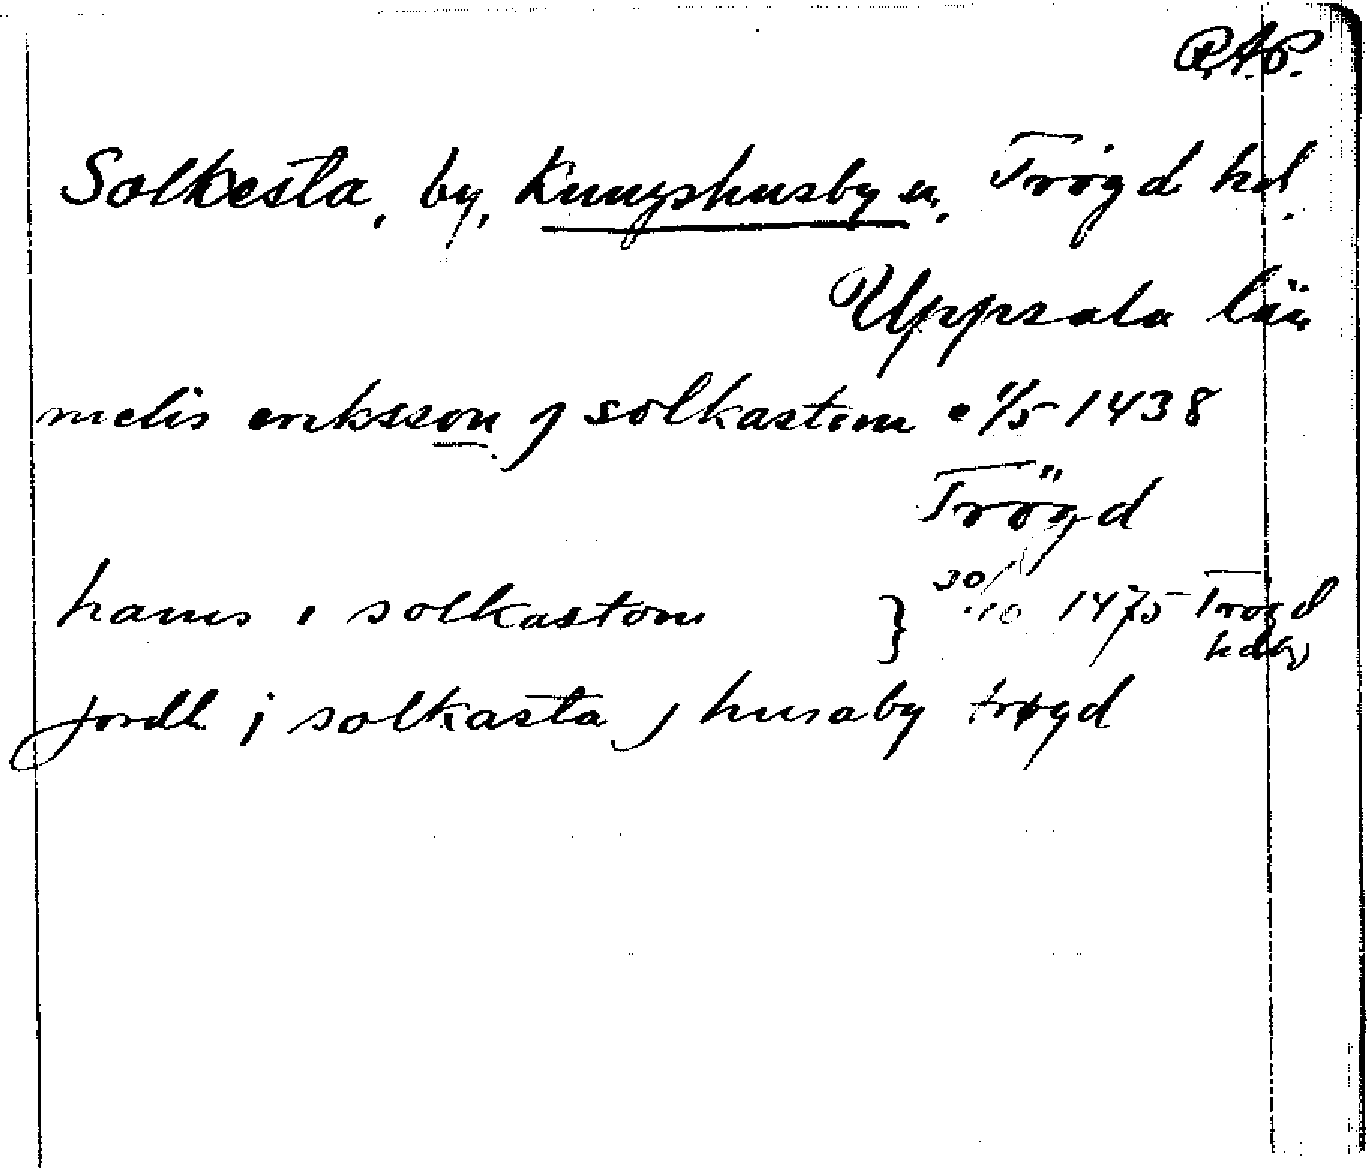 R.A.P.
Solkesta, by, Kungshusby sn, Trögd hd.
Uppsala län
melis eriksson j solkastom 1/5 1438
Trögd
hanus i solkastom } 30/10 1475 Trögd
hdbr
jordh j solkasta j husaby trøgd